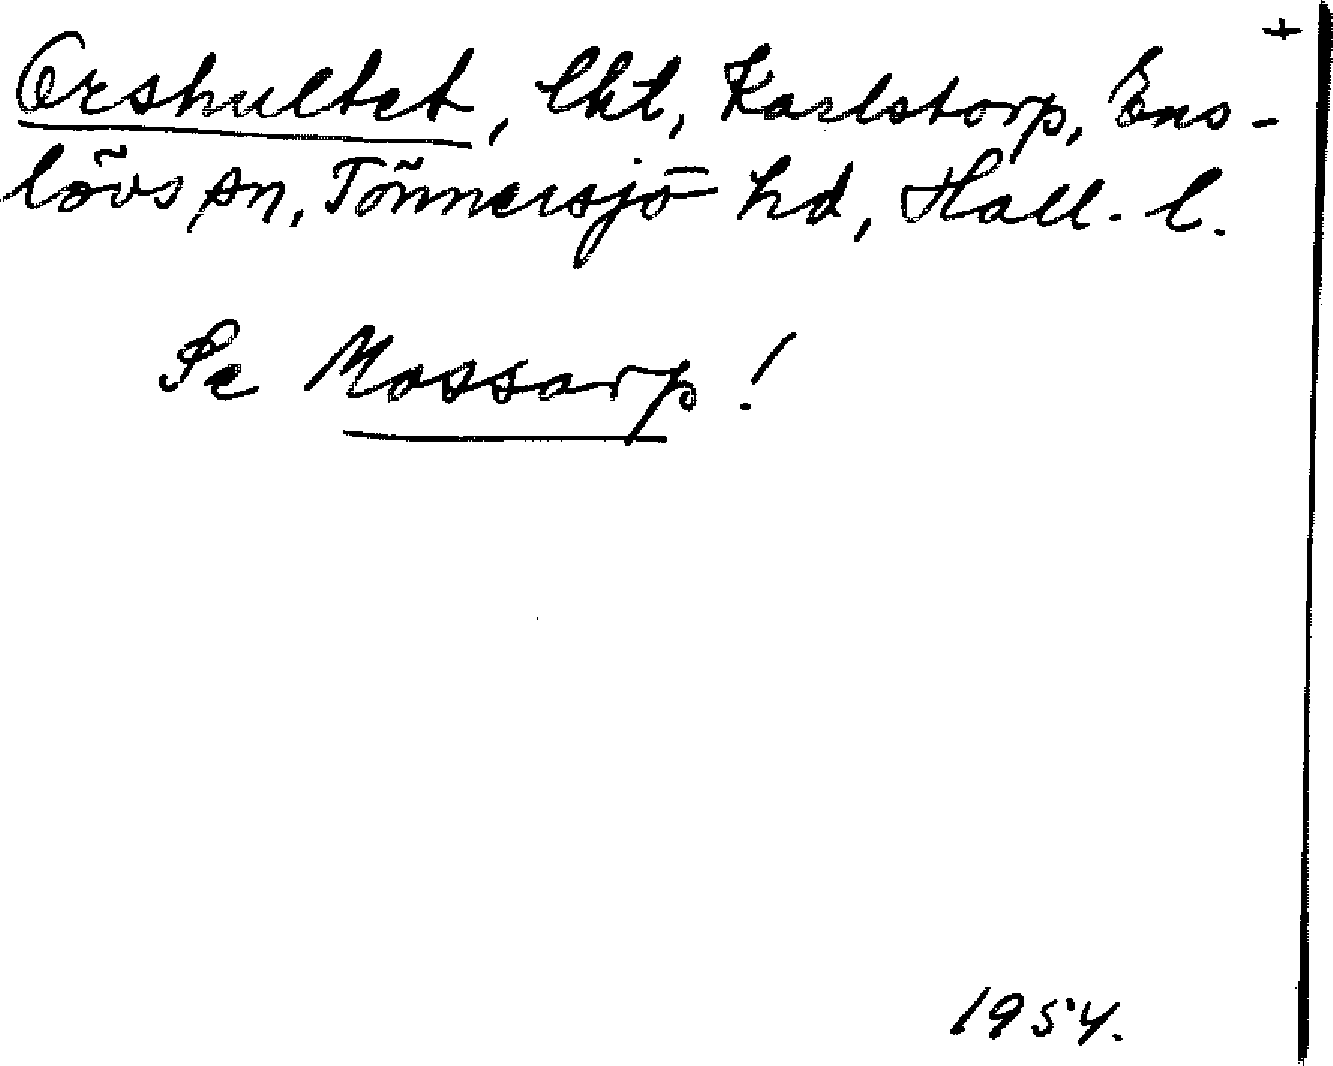 +
Orshultet, lht, Karlstorp, Ens-
lövs sn, Tönnersjö hd, Hall. l.
Se Mossarp!
1954.